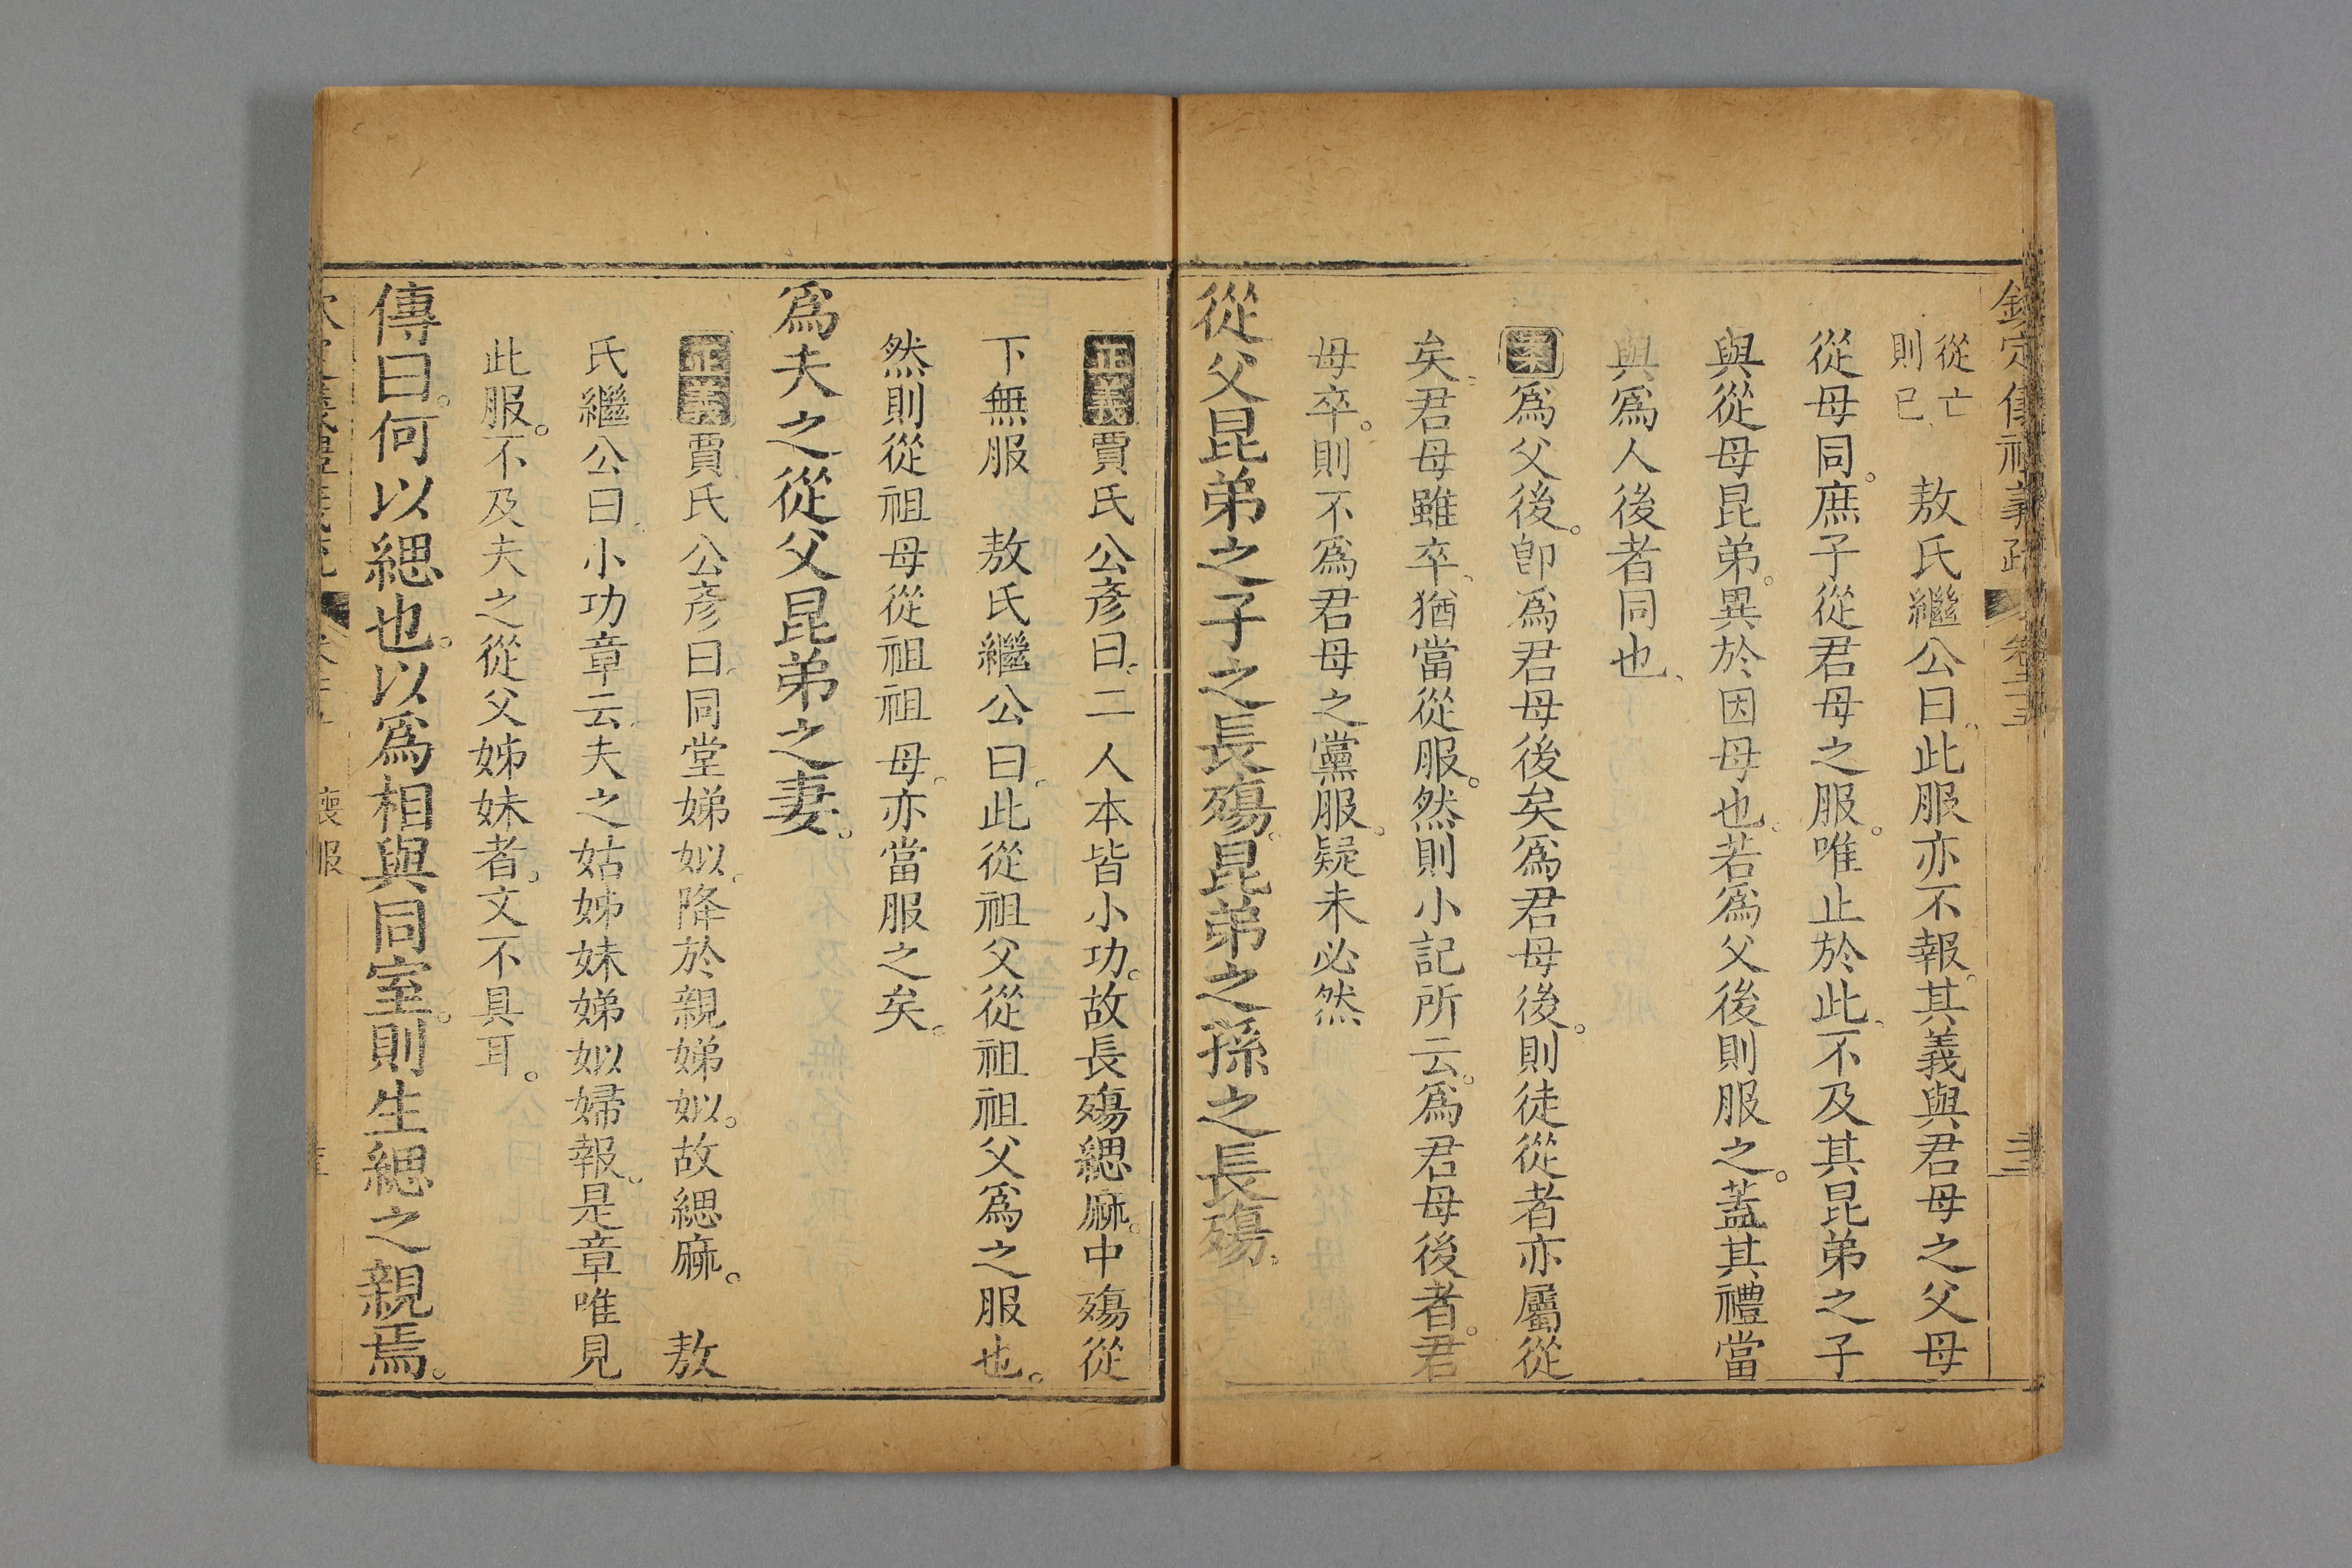 欽定儀禮義疏 卷二十五
從亡則已 敖氏繼公曰此服亦不報其義與君母之父母
從母同。庶子從君母之服。唯止於此不及其昆弟之子
與從母昆弟。異於因母也。若爲父後則服之。蓋其禮當
與爲人後者同也
案爲父後。卽爲君母後矣爲君母後。則徒從者亦屬從
矣。君母雖卒、猶當從服。然則小記所云。爲君母後者。君
母卒。則不爲君母之黨服。疑未必然
從父昆弟之子之長殤。昆弟之孫之長殤。
正義賈氏公彥曰。二人本皆小功。故長殤緦麻。中殤從
下無服 敖氏繼公曰。此從祖父從祖祖父爲之服也。
然則從祖母從祖祖母。亦當服之矣。
爲夫之從父昆弟之妻。
正義賈氏公彥曰。同堂娣姒。降於親娣姒。故緦麻。 敖
氏繼公曰。小功章云。夫之姑姊妹娣姒婦報。是章唯見
此服。不及夫之從父姊妹者。文不具耳。
傳曰。何以緦也。以爲相與同室。則生緦之親焉。
喪服